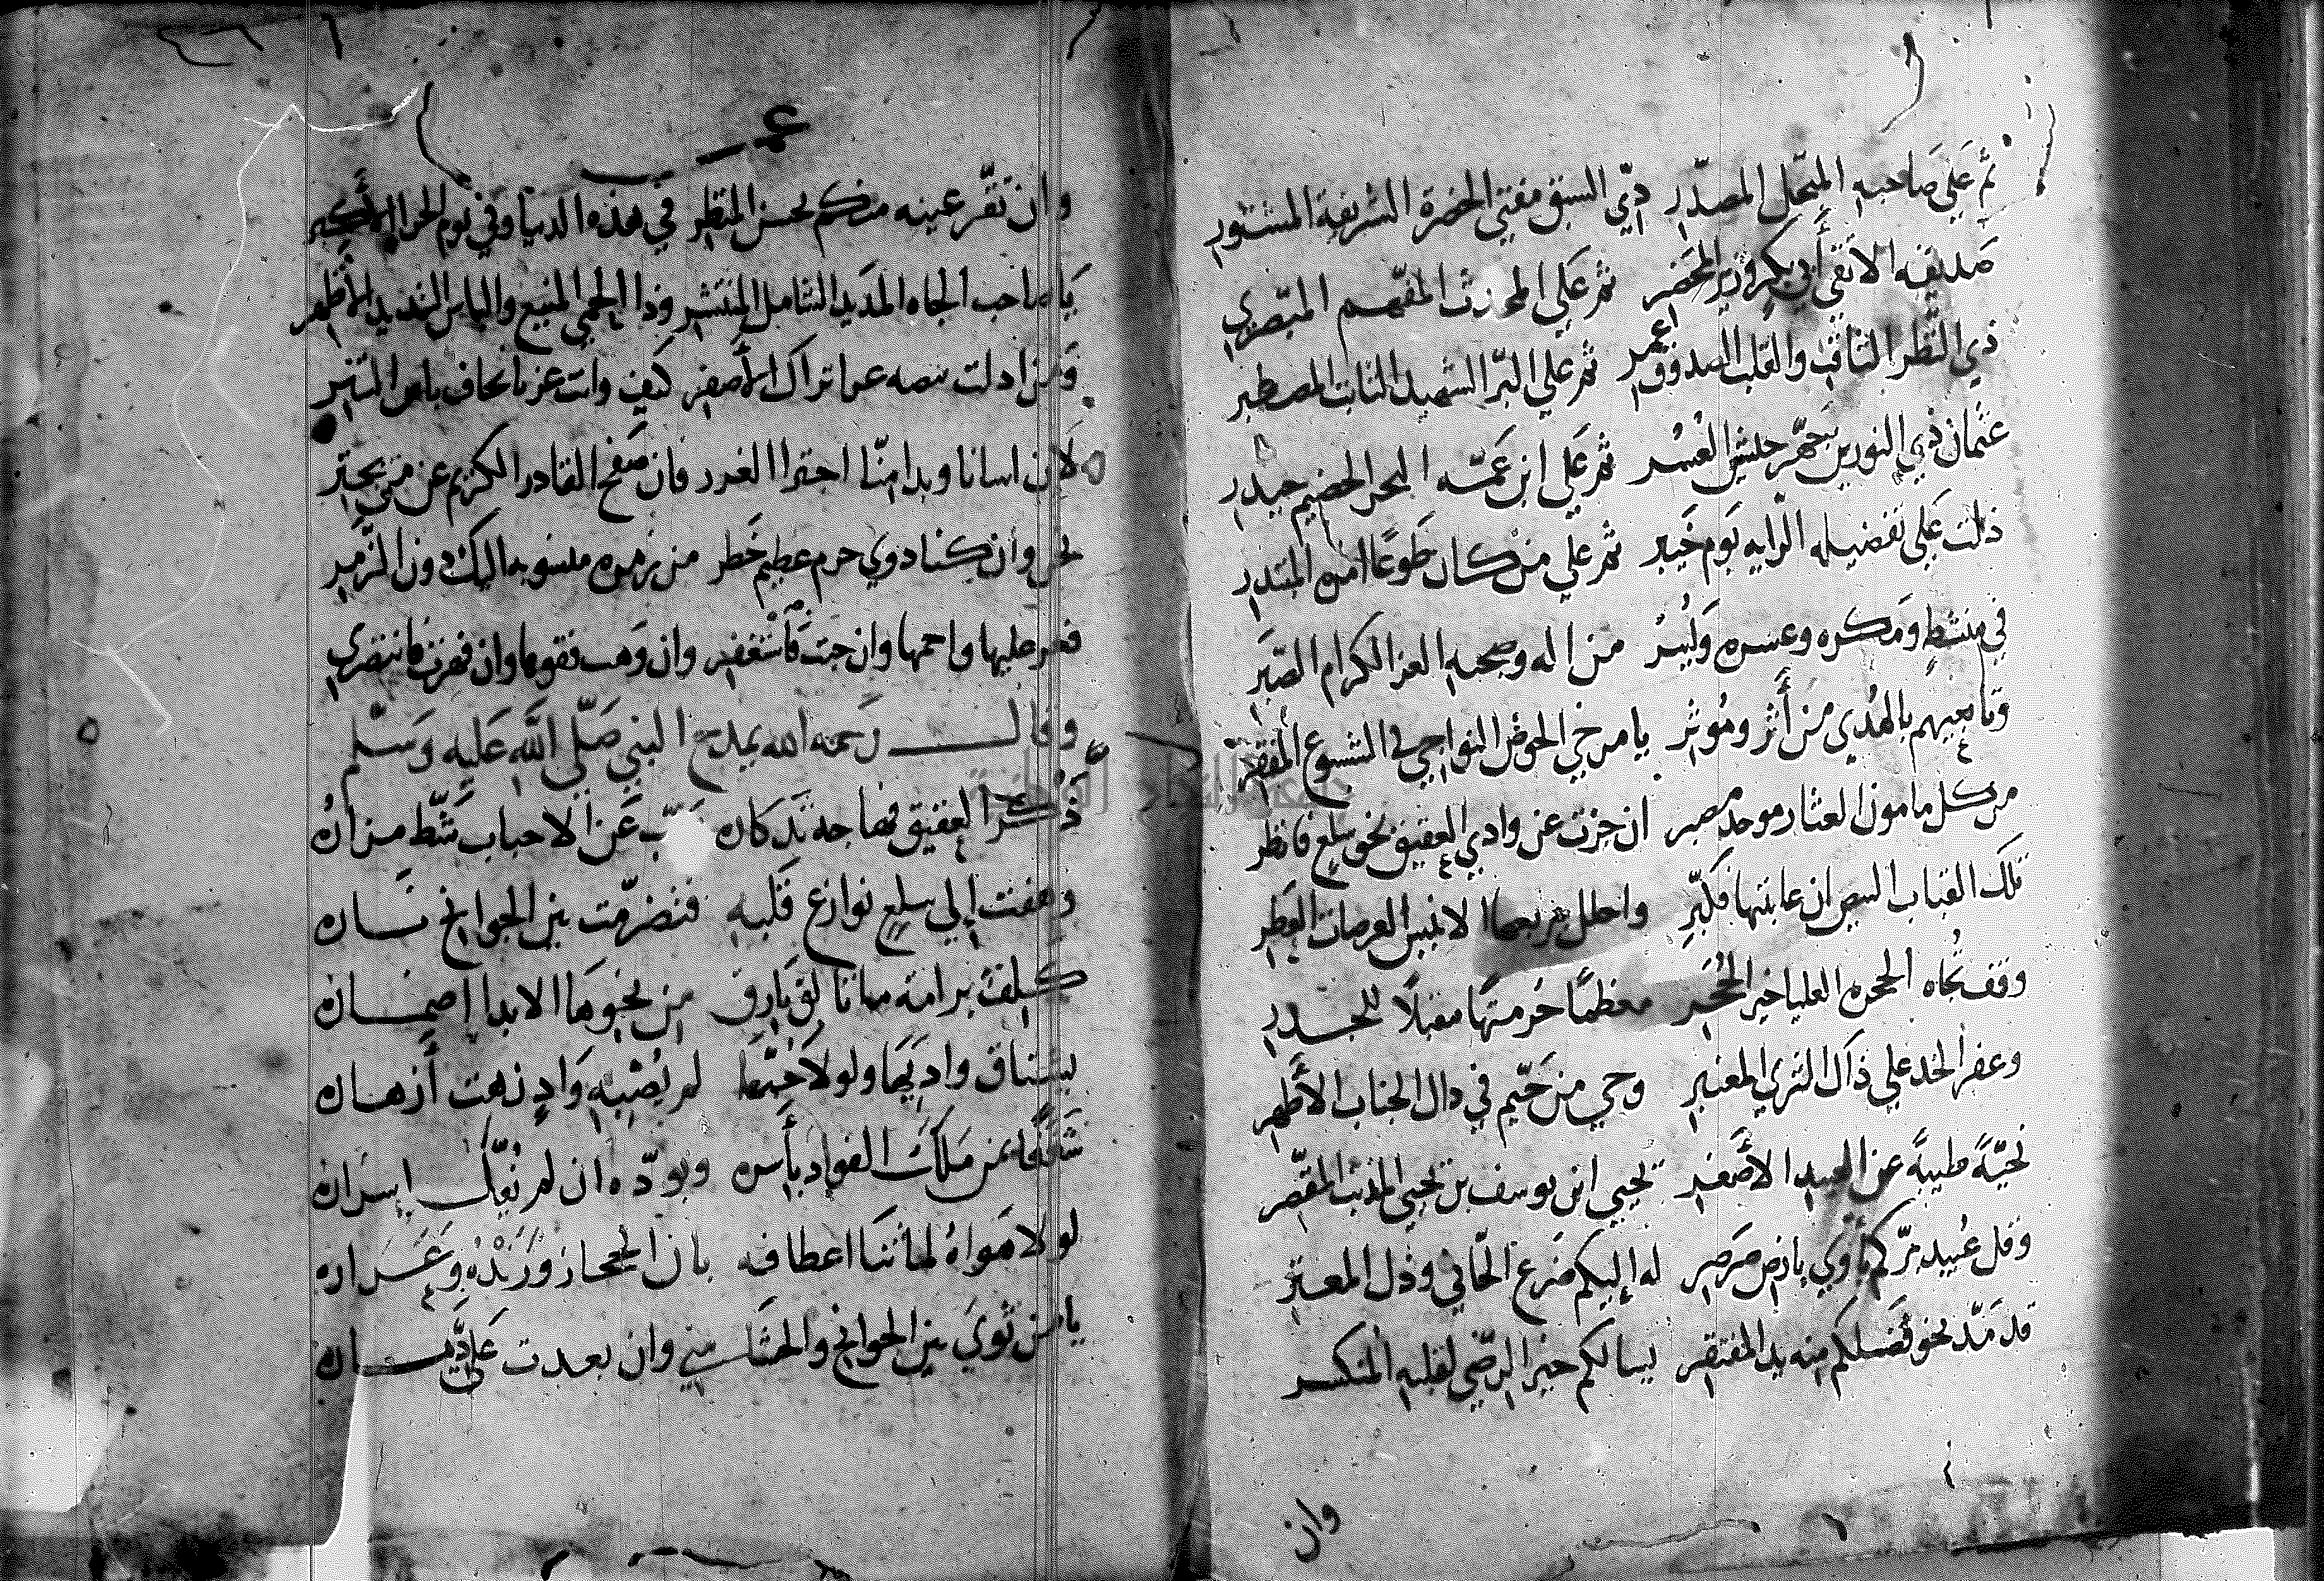 ثم على صاحبه المبجل المصدر ذي السبق مفتي الحضرة الشريفة المشتور
صديقه الاتقى أبي بكر وزير المحضر ثم على المحدث المفهم المتبصري
ذي النظر الثاقب والقلب الصدوق عمر ثم على البر الشهيد الثابت المصطبر
عثمان ذي النورين مجهز جيش العسر ثم على ابن عمه البحر الخضيم حيدر
دلت على تفضيله الراية يوم خيبر ثم على من كان طوعا امره المبتدر
في منشط ومكره وعسره ويسر من اله وصحبه العز الكرام الصبر
وتابعيهم بالهدي من أثر وموثر يا مرخي الحوض النواجي في الشسوع المقفر
من كل مامون العثار موحد مصبر ان جزت عن وادي العقيق نحو سلع فانظر
تلك القباب البيض ان عاينتها فكبر واحلل بربعها الانيس العرصات العطر
وقف تجاه الحجرة العليا خير الحجر معظما حرمتها مقبلا للجدر
وعفر الخد على ذاك الثرى المعنبر وحي من خيم في دال الجناب الأطهر
تحية طيبة عن العبيد الأصغر يحيى ابن يوسف بن يحيى المذنب المقصر
وقل عبيد بركم يأوي بارض صرصر له إليكم ضرع الجاني وذل المعتر
قد مد نحو فضلكم منه يد المفتقر يسالكم خير الرضى لقلبه المنكسر
وان
وان تقر عينه منكم بحسن المنظر في هذه الدنيا وفي يوم الأكبر
يا صاحب الجاه المديد الشامل المنتشر وذا الحمى المنيع والباس الشديد الأظهر
ومن اتراك الأصفر كيف وانت عزنا نخاف باس التتر
لان اسانا وبدا منا اجترا الغرر فان صفح القادر الكريم عن من يجتر
نحن وان كنا ذوي جرم عظيم خطر من زمرة منسوبه اليك دون الزمر
عليها واحمها وان جنت فاستغفر وان وهت فقوها وان فانتصري
وقال رحمه الله يمدح النبي صلى الله عليه وسلم
ذكر العقيق فهاجه تذكاره صب عن الاحباب شط مزاره
وهفت إلى سلع نوازع قلبه فتضرمت بين الجوانح ناره
كلف برامة ما تالق بارق من نحوها الا بدا اضماره
يشتاق واديها ولولا حبها لم يصبه واد زهت أزهاره
شغفا بمن ملك الفواد بأسره وبوده ان لم يفك إساره
لولا هواه لما ثنا اعطافه بان الحجاز ورنده وعراره
يا من ثوى بين الجوانح والحشا مني وان بعدت علي دياره